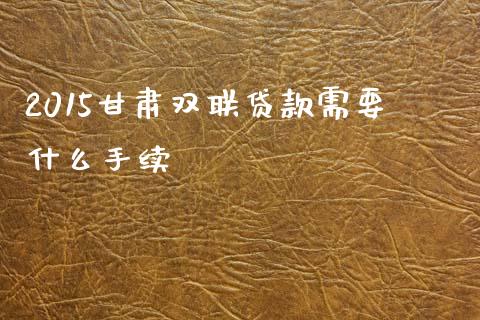 2015甘肃双联贷款需要
什么手续